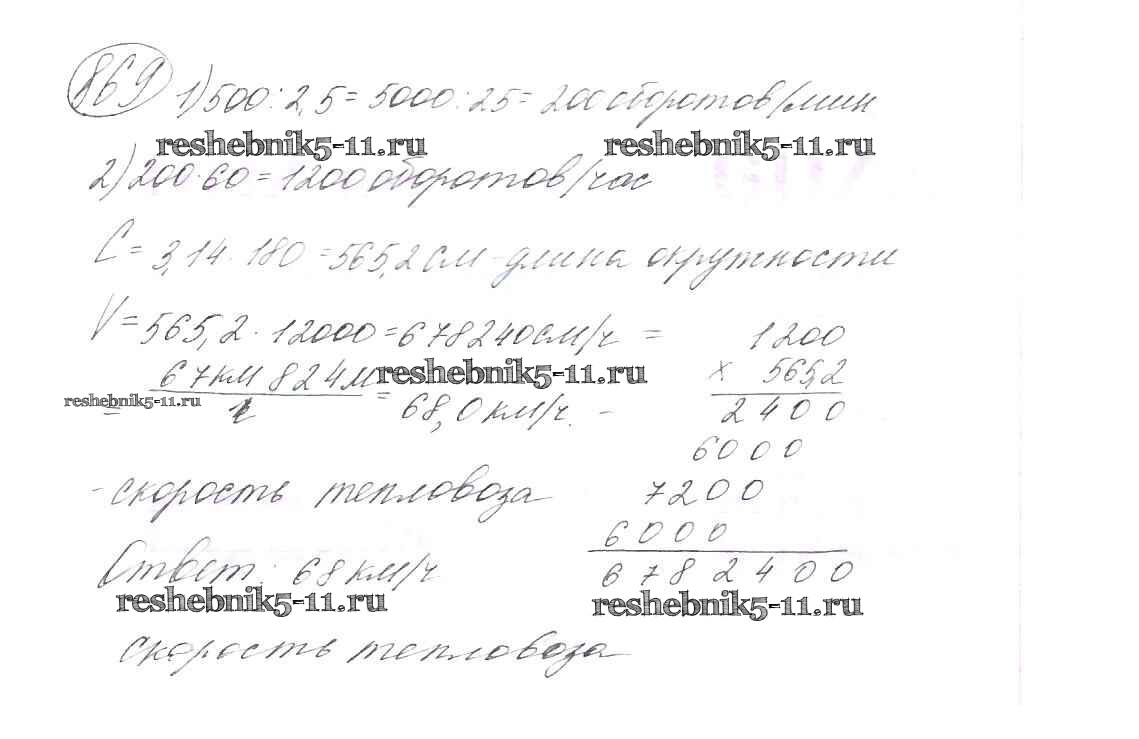 869 1) 500 : 2,5 = 5000 : 25 = 200 оборотов/мин
reshebnik5-11.ru reshebnik5-11.ru
2) 200 · 60 = 1200 оборотов/час
C = 3,14 · 180 = 565,2 см - длина окружности
V = 565,2 · 12000 = 678240 см/ч = 1200
67 км 824 м reshebnik5-11.ru x 565,2
reshebnik5-11.ru = 1 = 68,0 км/ч. - 2400
6000
- скорость тепловоза 7200
6000
Ответ: 68 км/ч 6782400
reshebnik5-11.ru reshebnik5-11.ru
скорость тепловоза